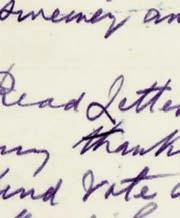 Sweeney an
Read Letter
my thank
kind vote o